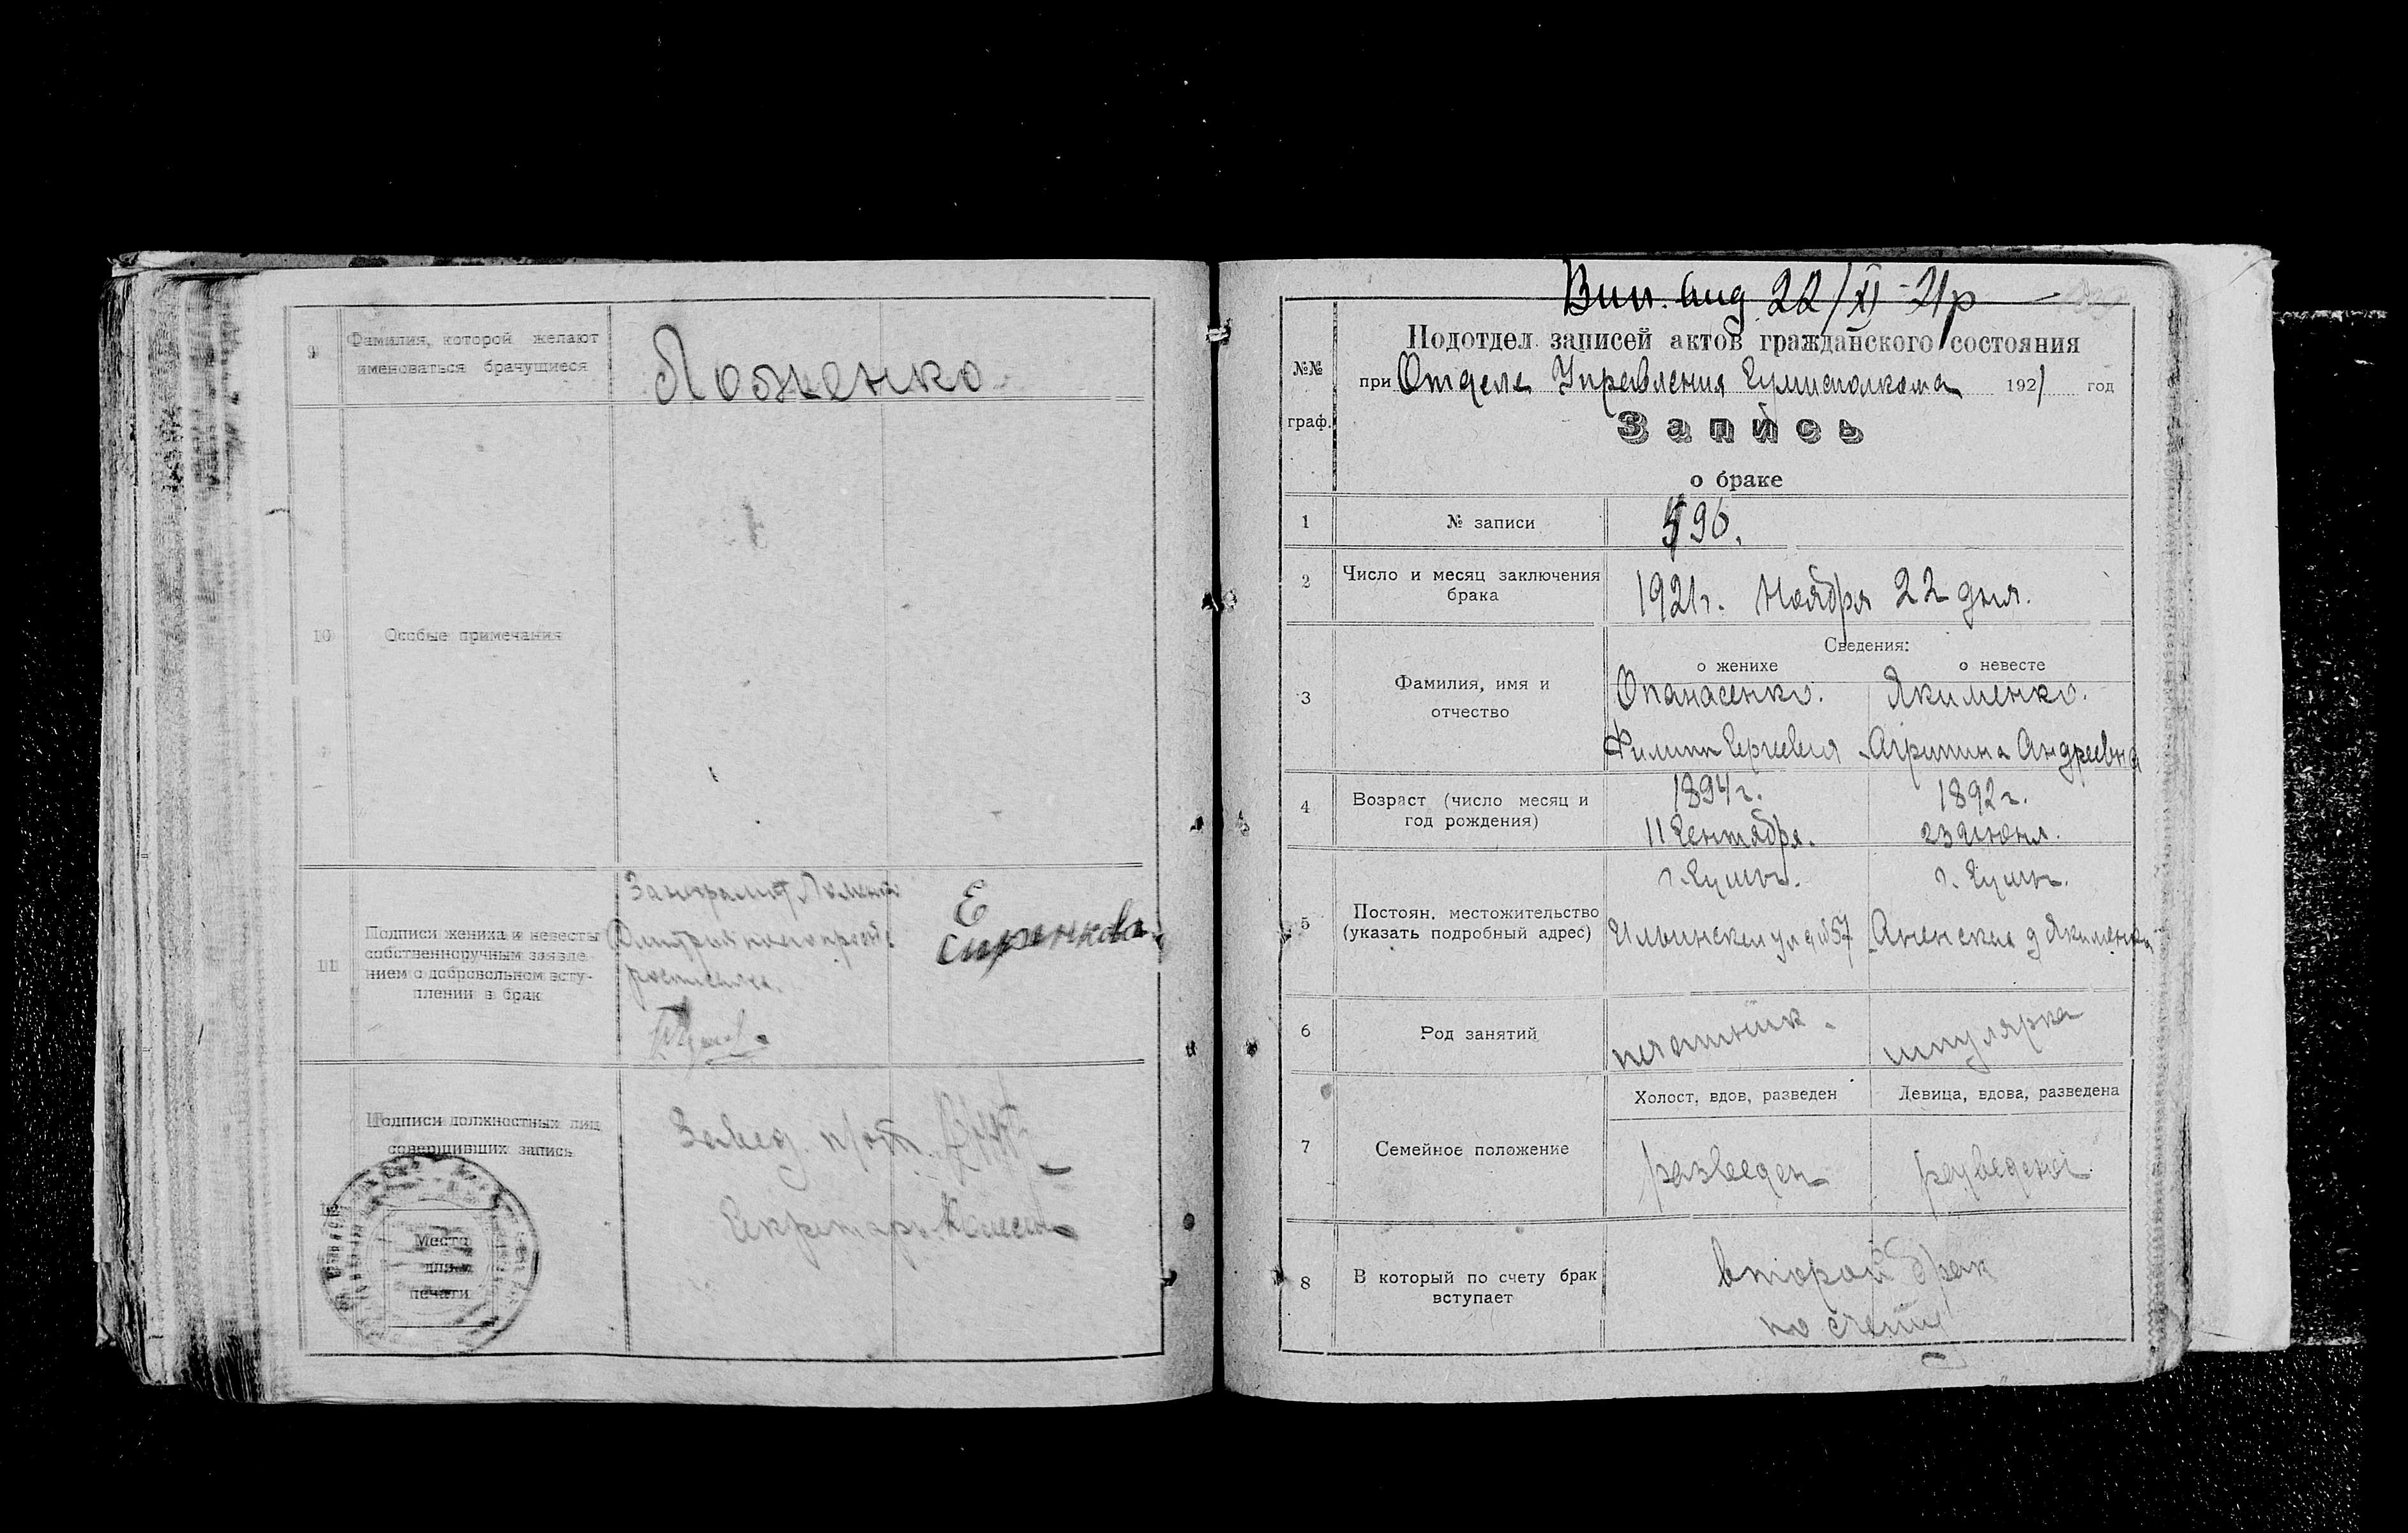 9
Фамилия, которой желают
именоваться брачущиеся
10
Особые примечания
11
Подписи жениха и невесты
собственноручным заявле-
нием о добровольном всту-
плении в брак
Е
Сиренкова
Подписи должностных лиц
совершивших запись
Секретарь
Место
для
печати
Вип. 22/XI-21р
Подотдел записей актов гражданского состояния
№№
граф.
при Отделе Управления 1921 год
Запись
о браке
1
№ записи
596.
2
Число и месяц заключения
брака
1921г. Ноября 22 дня.
Сведения:
о женихе
о невесте
3
Фамилия, имя и
отчество
Опанасенко.
Якименко.
Филипп Сергеевич
Агрипина Андреевна
4
Возраст (число месяц и
год рождения)
1894г.
11 Сентября.
1892г.
23 Июня.
5
Постоян. местожительство
(указать подробный адрес)
г. Сумы.
Ильинская ул д №57
г. Сумы.
д Якименка
6
Род занятий
печатник.
7
Семейное положение
Холост, вдов, разведен
Девица, вдова, разведена
разведен
разведена
8
В который по счету брак
вступает
второй брак
по счету